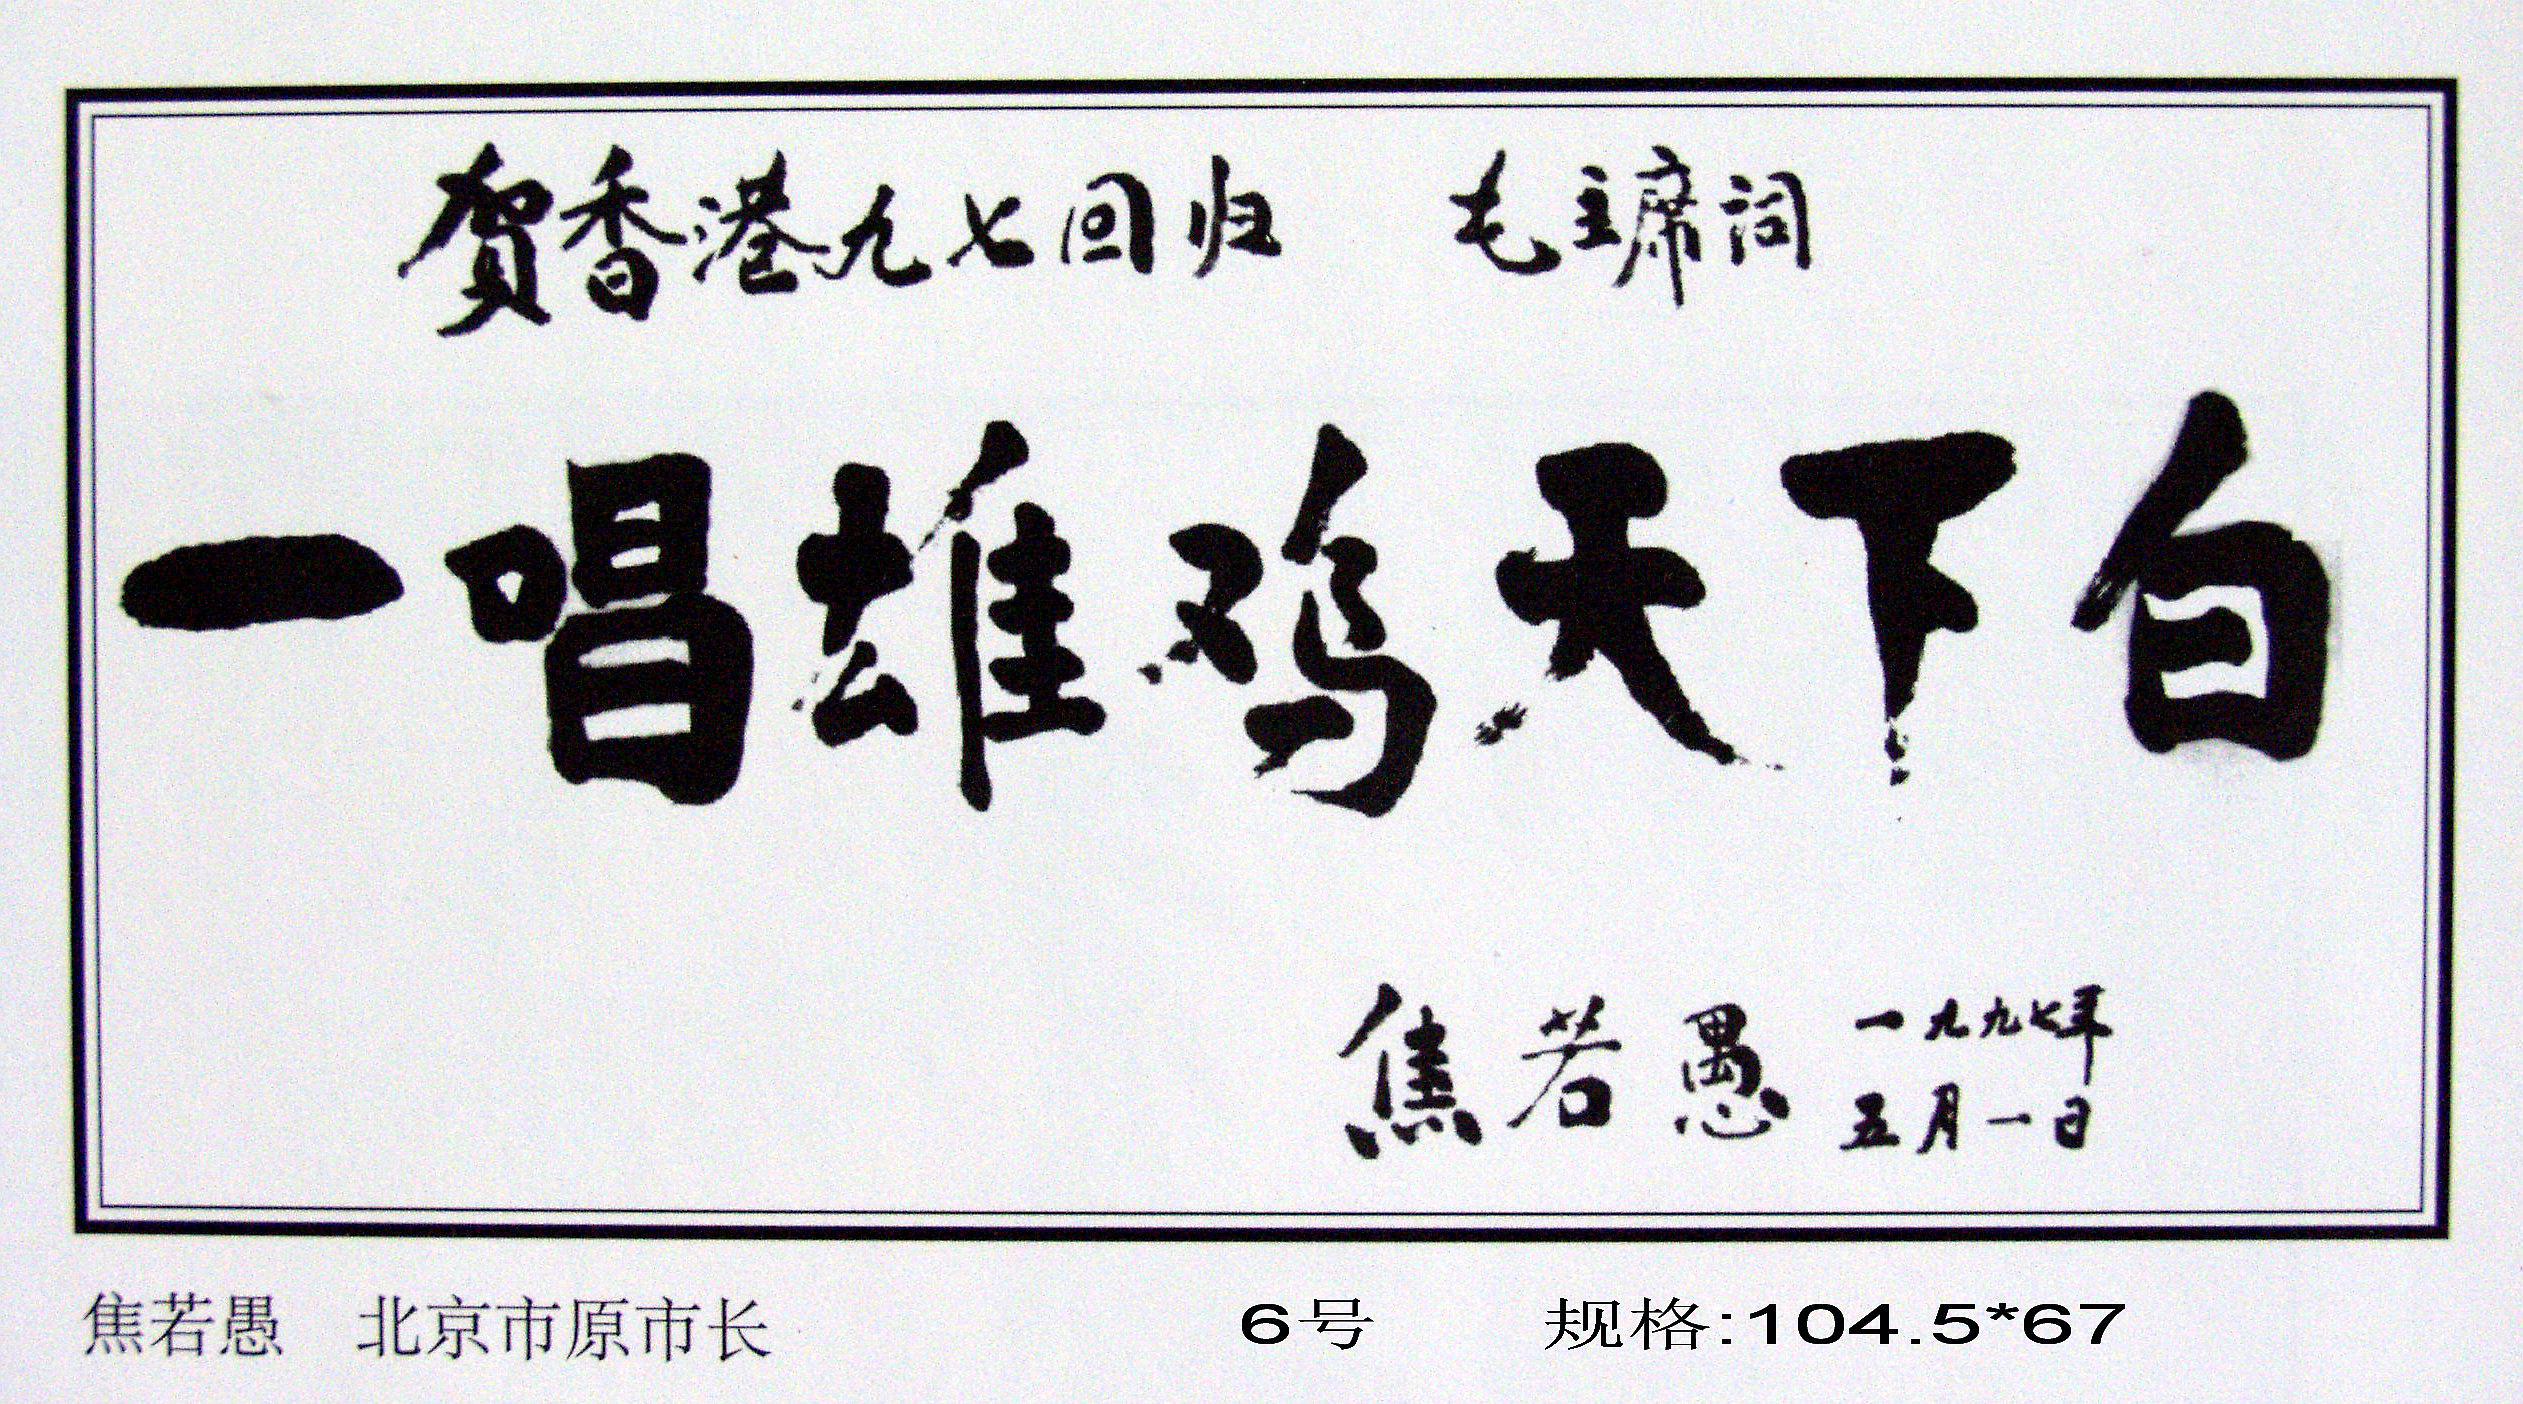 贺香港九七回归 毛主席词
一唱雄鸡天下白
焦若愚 一九九七年
五月一日
焦若愚 北京市原市长 6号 规格:104.5*67